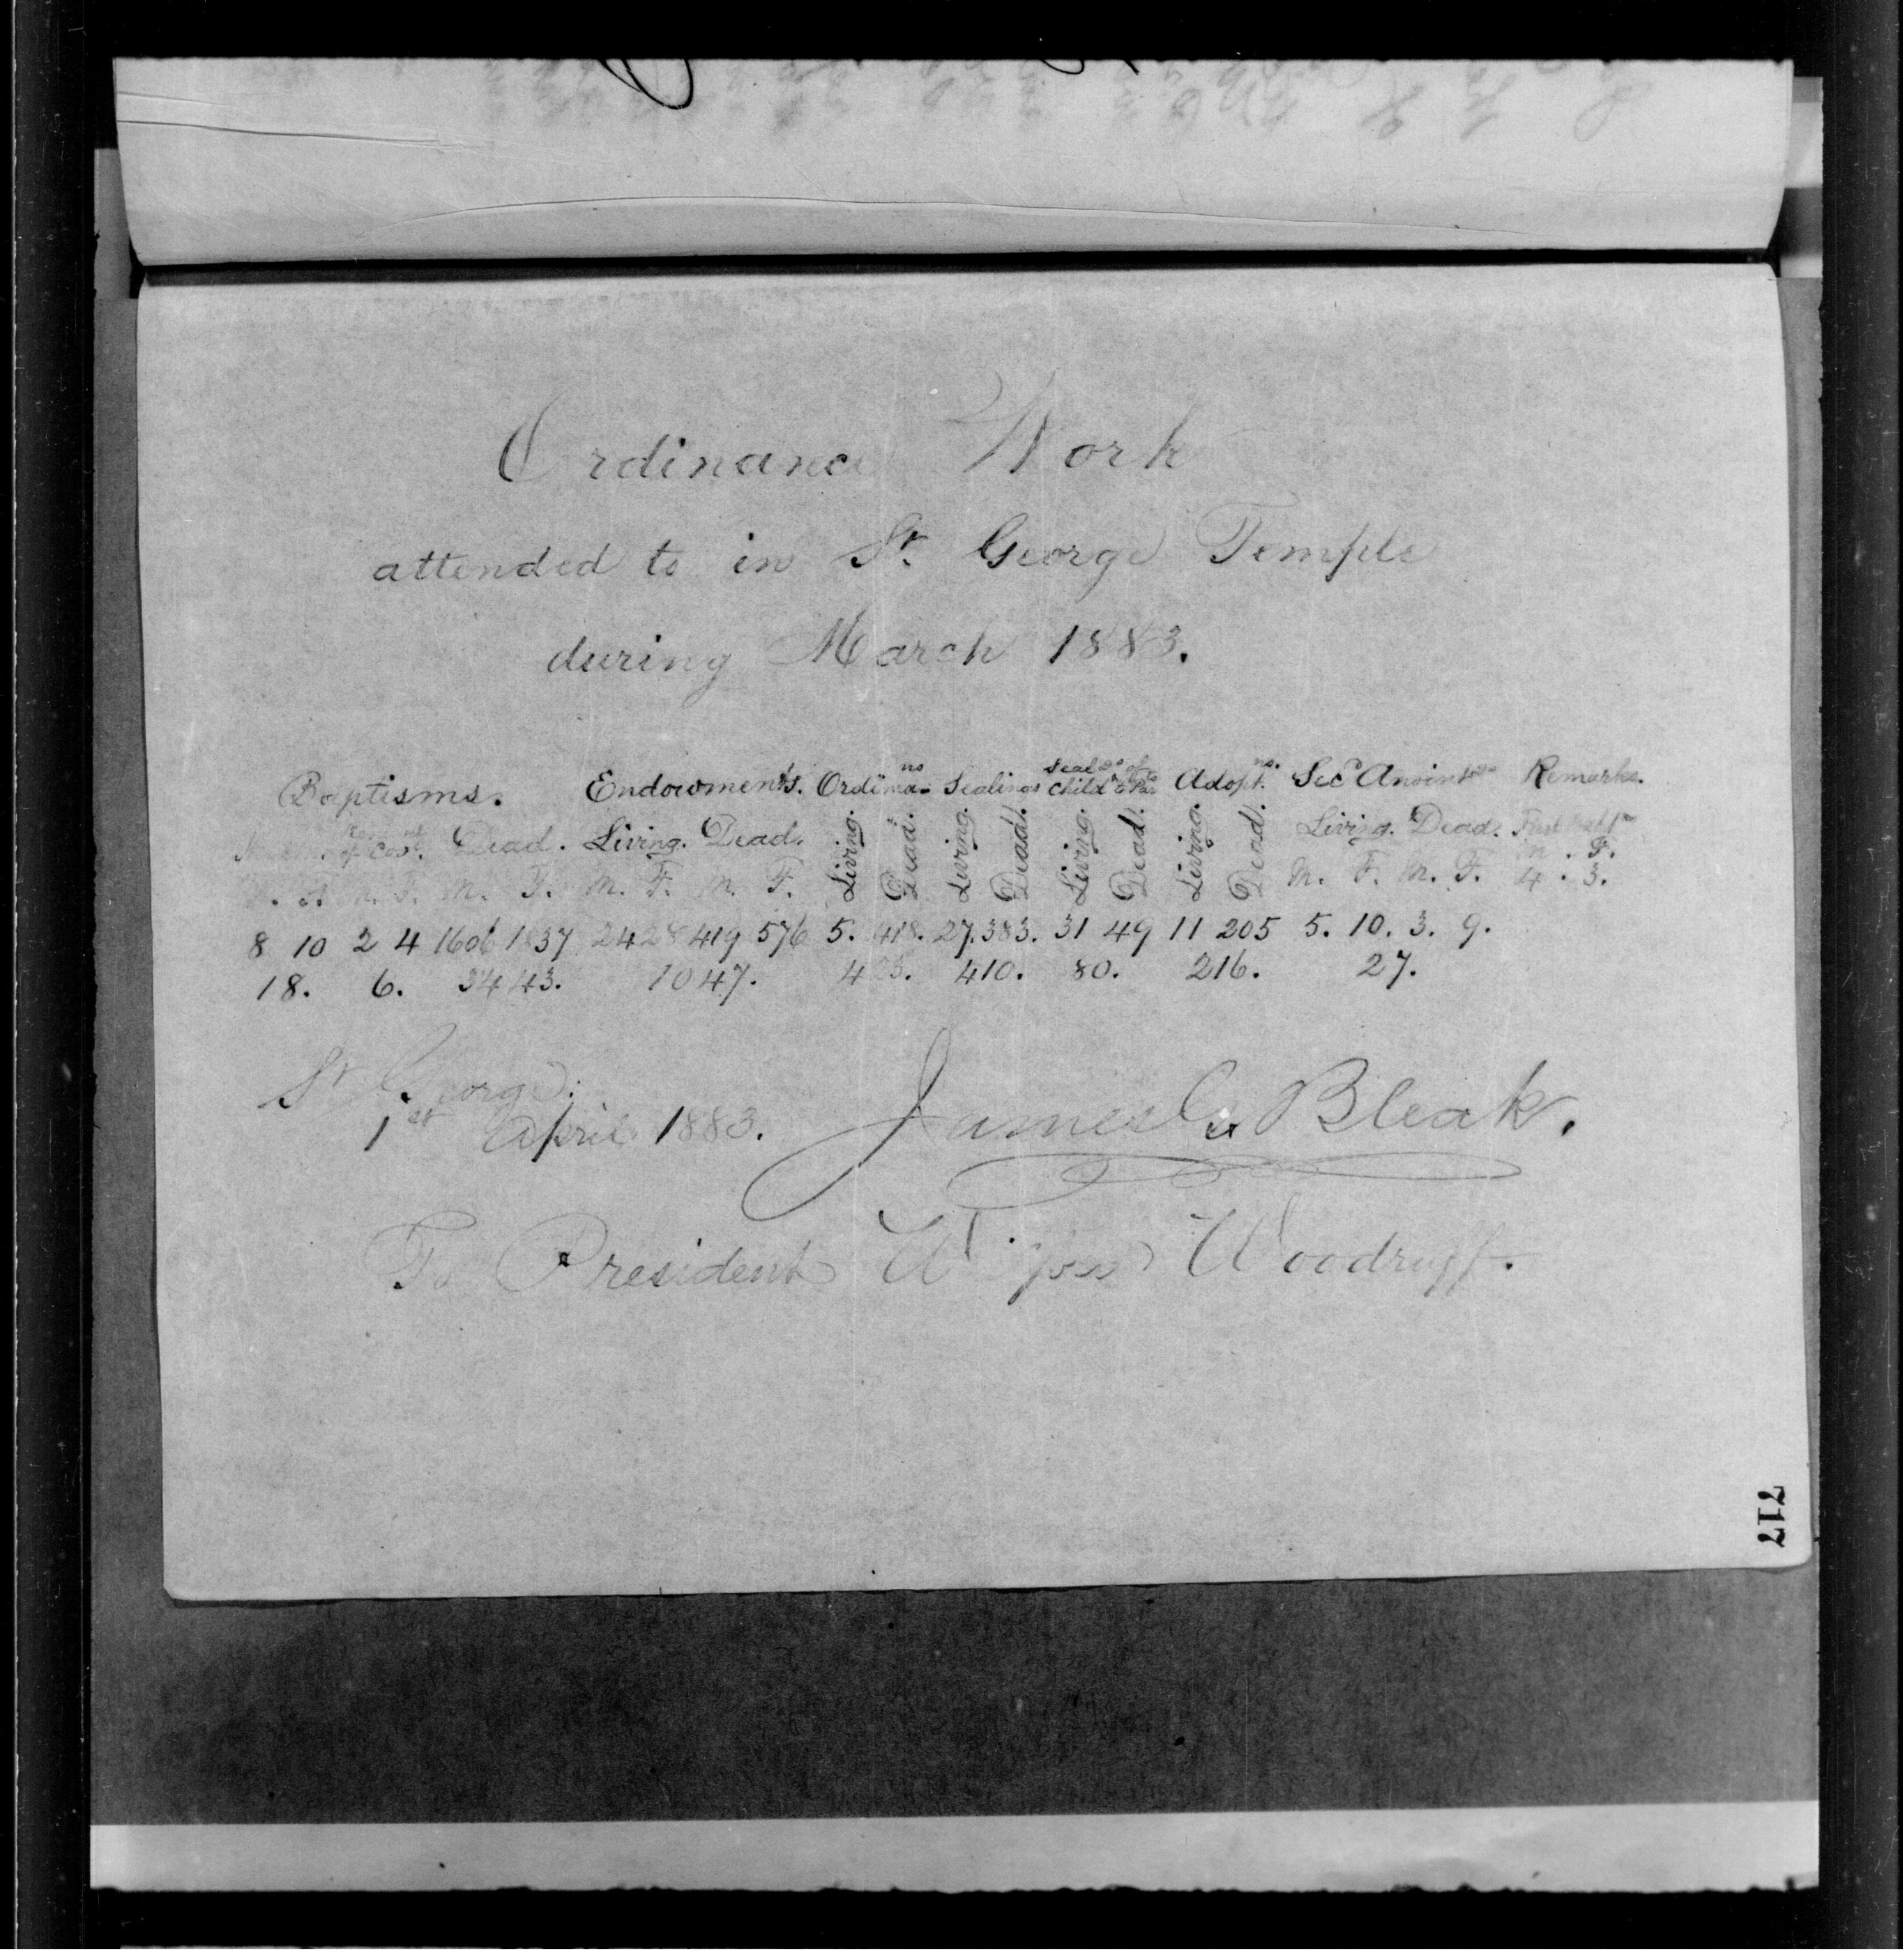 Ordinance Work
attended to in St. George Temple
during March 1883.
Baptisms. Endowments. Ordina-ns Sealings Seal gs of Child n to Par Adopt. ns. Sec d Anoint gs Remarks.
of Cov t. Dead. Living. Dead. Living. Dead. Living. Dead. Living. Dead. Living. Dead. Living. Dead.
M. F. M. F. M. F. M. F. M. F. M. F. M. F.
4. 3.
8 10 2 4 1606 1837 24 28 419 576 5. 418. 27. 383. 31 49 11 205 5. 10. 3. 9.
18. 6. 3443. 1047. 423. 410. 80. 216. 27.
St. George:
1st April 1883. James G. Bleak.
To President Wilford Woodruff.
717